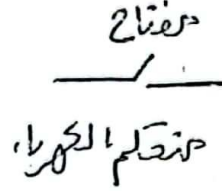 مفتاح
متحكم الكهرباء